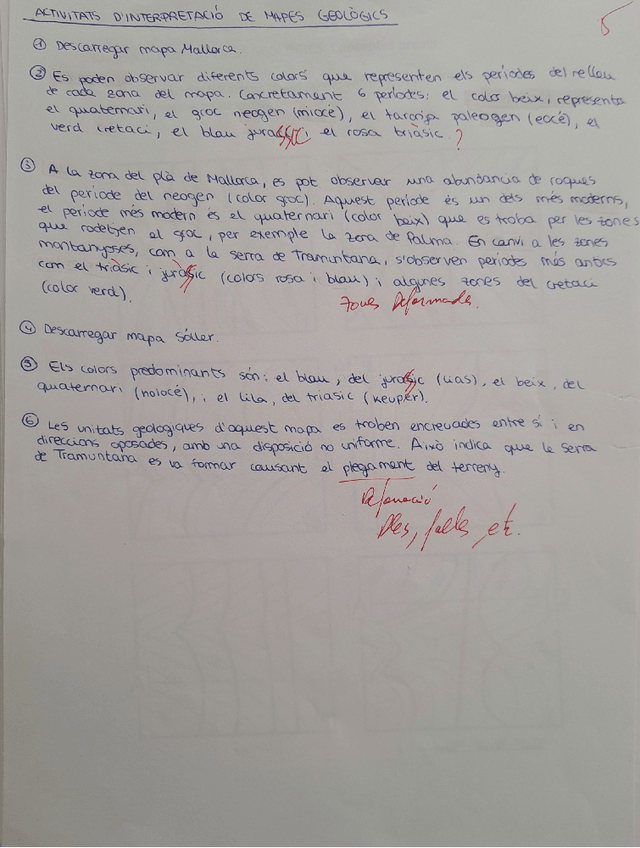 ACTIVITATS D'INTERPRETACIÓ DE MAPES GEOLÒGICS
5
① Descarregar mapa Mallorca.
② Es poden observar diferents colors que representen els períodes del relleu
de cada zona del mapa. Concretament 6 períodes: el color beix, representa
el quaternari, el groc neogen (miocè), el taronja paleogen (eocè), el
verd cretaci, el blau jurassic i el rosa triàsic. ?
③ A la zona del plà de Mallorca, es pot observar una abundancia de roques
del període del neogen (color groc). Aquest període és un dels més moderns,
el període més modern és el quaternari (color beix) que es troba per les zones
que rodetjen al groc, per exemple la zona de Palma. En canvi a les zones
montanyoses, com a la serra de Tramuntana, s'observen períodes més antics
com el triàsic i juràssic (colors rosa i blau) i algunes zones del cretaci
(color verd).
Zones Deformades.
④ Descarregar mapa Sóller.
⑤ Els colors predominants són: el blau, del jurassic (lias), el beix, del
quaternari (holocé), i el lila, del triasic (keuper).
⑥ Les unitats geologiques d'aquest mapa es troben encreuades entre sí i en
direccions oposades, amb una disposició no uniforme. Això indica que la serra
de Tramuntana es va formar causant el plegament del terreny.
Deformació
Plecs, falles, etc.